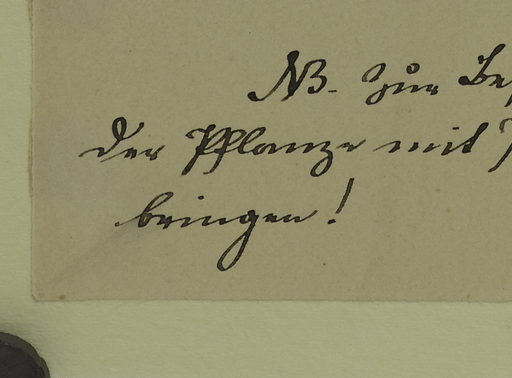 NB. Zur Be
der Pflanze mit
bringen!